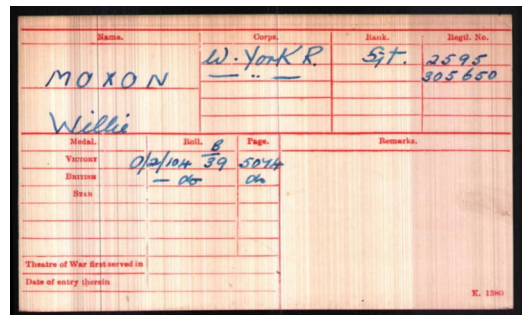 Name. Corps. Rank. Regtl. No.
MOXON W. York R. Sjt. 2595
— " — 305650
Willie
Medal. Roll. Page. Remarks.
VICTORY O/2/104 B39 5074
BRITISH — do do
STAR
Theatre of War first served in
Date of entry therein
K. 1380